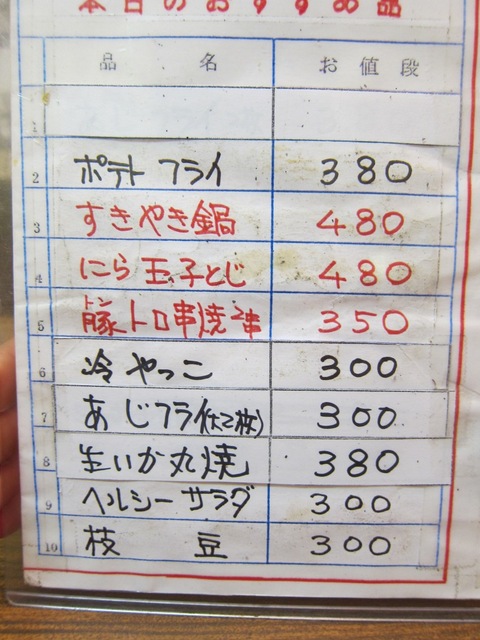 本日のおすすめ品
品 名 お値段
1
2 ポテトフライ 380
3 すきやき鍋 480
4 にら玉子とじ 480
5 豚トロ串焼2串 350
6 冷やっこ 300
7 あじフライ 300
8 生いか丸焼 380
9 ヘルシーサラダ 300
10 枝豆 300